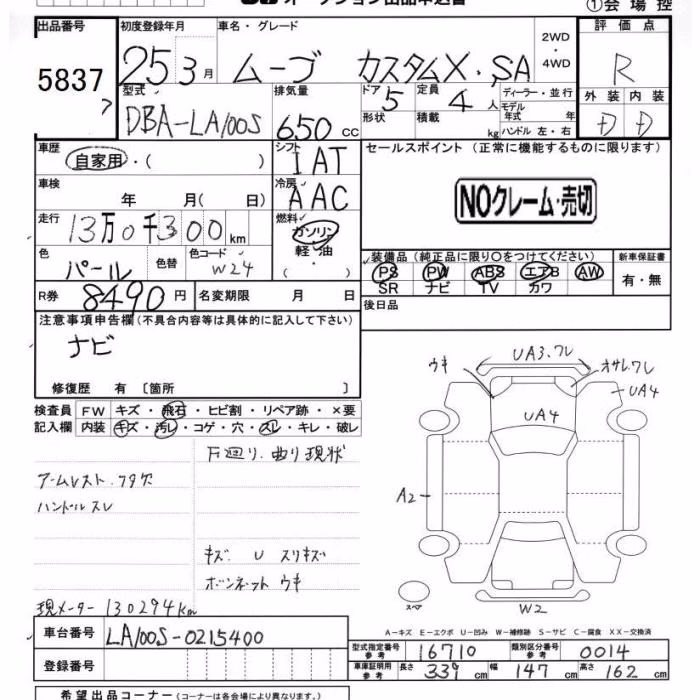 オークション出品申込書
①会場控
出品番号 初度登録年月 車名・グレード 2WD・4WD 評価点
5837 25 3月 ムーヴ カスタムX・SA R
型式 排気量 ドア 定員 ディーラー・並行 外装 内装
DBA-LA100S 650cc 5 4人 モデル年式 年 D D
形状 積載 kg ハンドル 左・右
車歴 シフト セールスポイント (正常に機能するものに限ります)
自家用・( ) IAT
車検 年 月( 日) 冷房 AAC NOクレーム・売切
走行 13万0千300km 燃料 ガソリン・軽油・( )
色 パール 色替 色コード W24
装備品 (純正品に限り○をつけてください) 新車保証書
PS PW ABS エアB AW 有・無
SR ナビ TV カワ
R券 8490円 名変期限 月 日 後日品
注意事項申告欄(不具合内容等は具体的に記入して下さい)
ナビ
修復歴 有 〔箇所 〕
検査員 FW キズ・飛石・ヒビ割・リペア跡・×要
記入欄 内装 キズ・汚レ・コゲ・穴・スレ・キレ・破レ
下廻り.曲り現状
ハンドルスレ
キズ U スリキズ
ボンネット ウキ
現メーター 130294km
ウキ UA3.ワレ オサレワレ
UA4
UA4
A2
スペア W2
A-キズ E-エクボ U-凹み W-補修跡 S-サビ C-腐食 XX-交換済
車台番号 LA100S-0215400
型式指定番号 参考 16710 類別区分番号 参考 0014
登録番号
車庫証明用 参考 長さ 339cm 幅 147cm 高さ 162cm
希望出品コーナー (コーナーは各会場により異なります。)